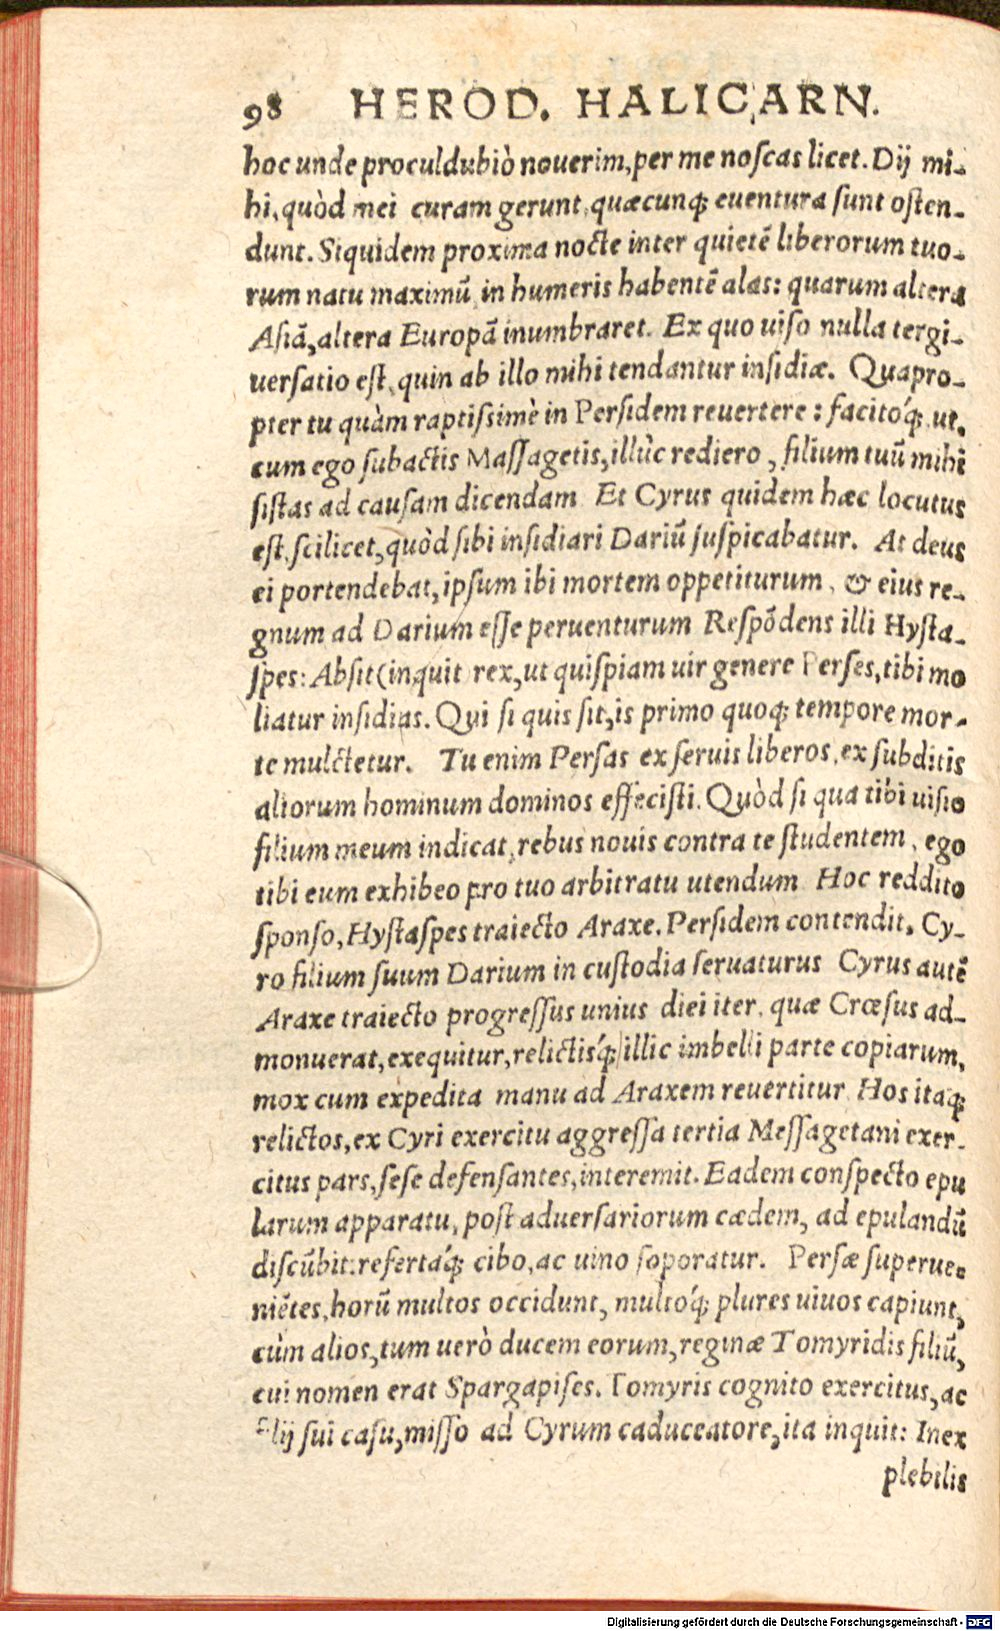 98 HEROD. HALICARN.
hoc unde proculdubiò nouerim, per me noſcas licet. Dij mi-
hi, quòd mei curam gerunt, quæcunq; euentura ſunt oſten-
dunt. Siquidem proxima nocte inter quietē liberorum tuo-
rum natu maximū, in humeris habentē alas: quarum altera
Aſiā, altera Europā inumbraret. Ex quo uiſo nulla tergi-
uerſatio eſt, quin ab illo mihi tendantur inſidiæ. Quapro-
pter tu quàm raptiſsimè in Perſidem reuertere: facitóq́; ut,
cum ego ſubactis Maſſagetis, illùc rediero, filium tuū mihi
ſiſtas ad cauſam dicendam Et Cyrus quidem hæc locutus
eſt, ſcilicet, quòd ſibi inſidiari Dariū ſuſpicabatur. At deus
ei portendebat, ipſum ibi mortem oppetiturum, & eius re-
gnum ad Darium eſſe peruenturum Reſpōdens illi Hyſta-
ſpes: Abſit (inquit) rex, ut quiſpiam uir genere Perſes, tibi mo
liatur inſidias. Qui ſi quis ſit, is primo quoq; tempore mor-
te mulctetur. Tu enim Perſas ex ſeruis liberos, ex ſubditis
aliorum hominum dominos effeciſti. Quòd ſi qua tibi uiſio
filium meum indicat, rebus nouis contra te ſtudentem, ego
tibi eum exhibeo pro tuo arbitratu utendum Hoc reddito
ſponſo, Hyſtaſpes traiecto Araxe, Perſidem contendit, Cy-
ro filium ſuum Darium in cuſtodia ſeruaturus Cyrus autē
Araxe traiecto progreſſus unius diei iter, quæ Crœſus ad-
monuerat, exequitur, relictisq́; illic imbelli parte copiarum,
mox cum expedita manu ad Araxem reuertitur Hos itaq;
relictos, ex Cyri exercitu aggreſſa tertia Meſſagetani exer-
citus pars, ſeſe defenſantes, interemit. Eadem conſpecto epu
larum apparatu, poſt aduerſariorum cædem, ad epulandū
diſcūbit: refertáq́; cibo, ac uino ſoporatur. Perſæ ſuperue-
niētes, horū multos occidunt, multóq́; plures uiuos capiunt,
cùm alios, tum uerò ducem eorum, reginæ Tomyridis filiū,
cui nomen erat Spargapiſes. Tomyris cognito exercitus, ac
filij ſui caſu, miſſo ad Cyrum caduceatore, ita inquit: Inex
plebilis
Digitalisierung gefördert durch die Deutsche Forschungsgemeinschaft - DFG